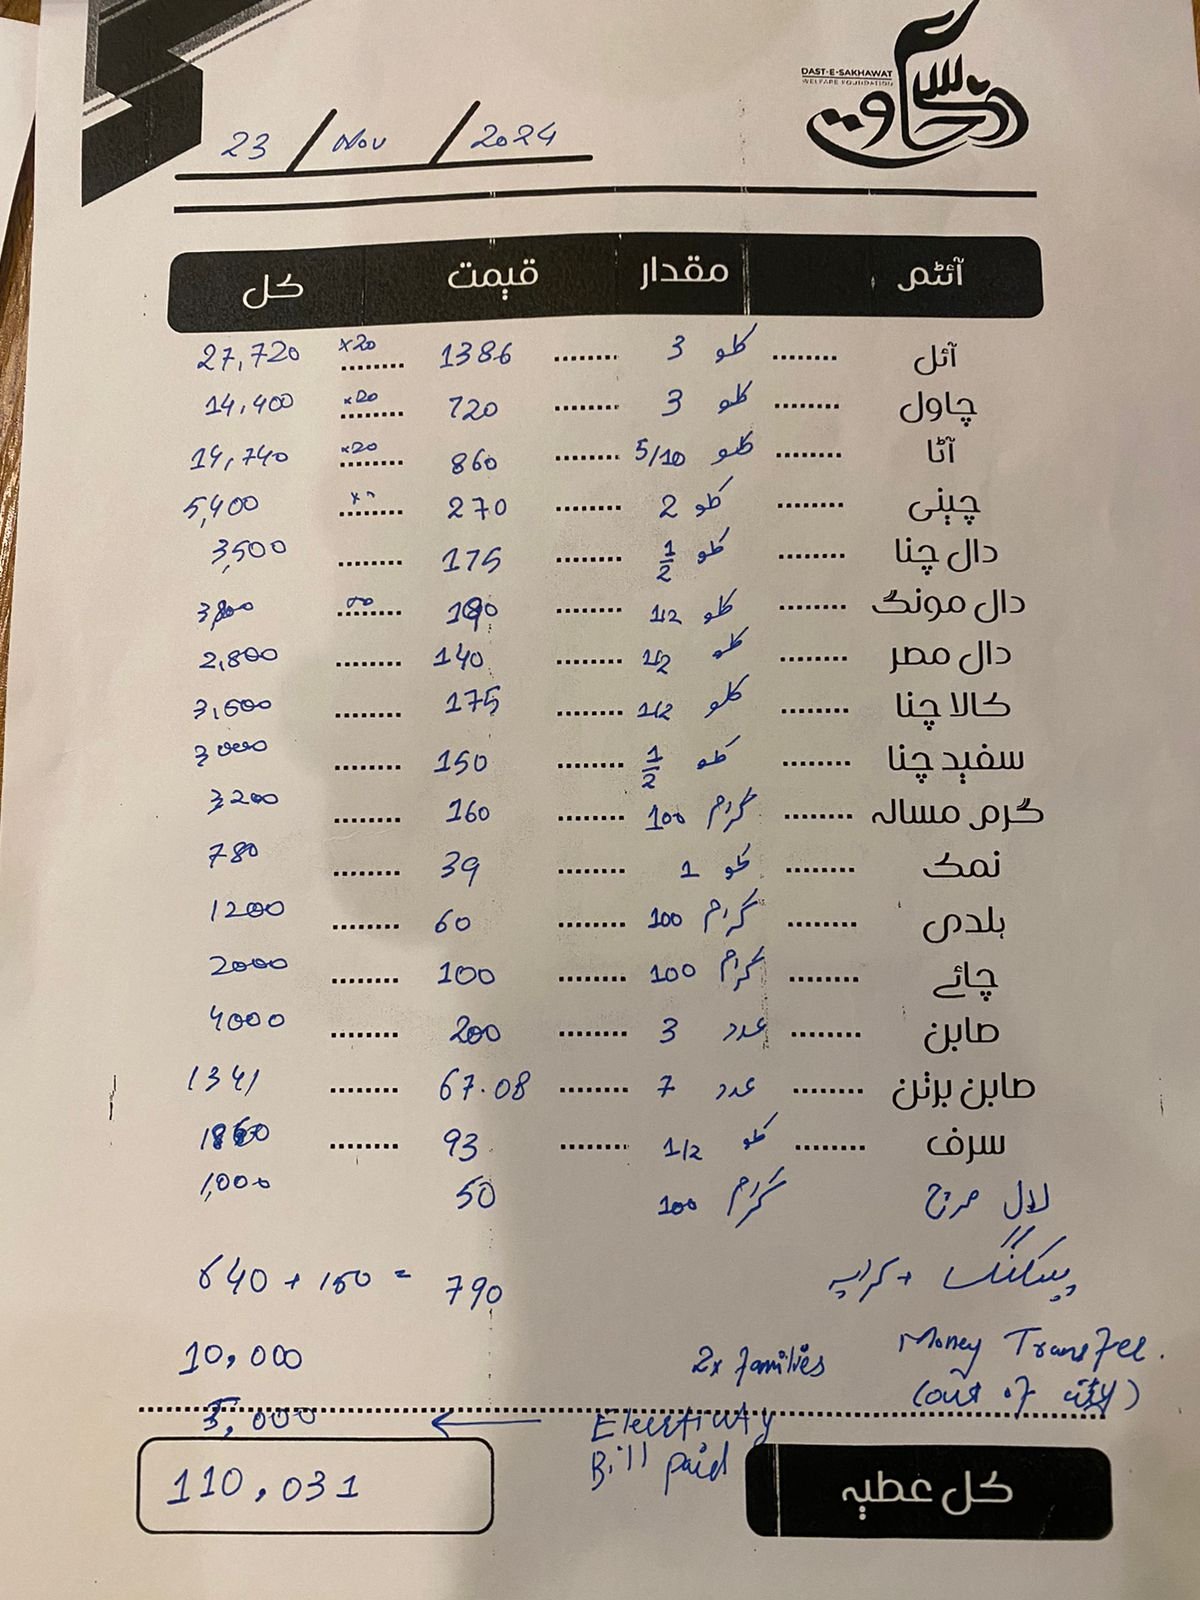 DAST-E-SAKHAWAT
WELFARE FOUNDATION
دست سخاوت
23 / Nov / 2024
آئٹم مقدار قیمت کل
آئل ........ کلو 3 ........ 1386 ........ ×20 27,720
چاول ........ کلو 3 ........ 720 ........ ×20 14,400
آٹا ........ کلو 5/10 ........ 860 ........ ×20 14,740
چینی ........ کلو 2 ........ 270 ........ 5,400
دال چنا ........ کلو 1/2 ........ 175 ........ 3,500
دال مونگ ........ کلو 1/2 ........ 190 ........ 3,800
دال مصر ........ کلو 1/2 ........ 140 ........ 2,800
کالا چنا ........ کلو 1/2 ........ 175 ........ 3,500
سفید چنا ........ کلو 1/2 ........ 150 ........ 3,000
گرم مسالہ ........ گرام 100 ........ 160 ........ 3,200
نمک ........ کلو 1 ........ 39 ........ 780
ہلدی ........ گرام 100 ........ 60 ........ 1200
چائے ........ گرام 100 ........ 100 ........ 2000
صابن ........ عدد 3 ........ 200 ........ 4000
صابن برتن ........ عدد 7 ........ 67.08 ........ 1341
سرف ........ کلو 1/2 ........ 93 ........ 1860
لال مرچ گرام 100 50 1,000
پیکنگ + کرایہ 640 + 150 = 790
Money Transfer. 2x families 10,000
(out of city)
Electricity ← 5,000
Bill paid
کل عطیہ 110,031